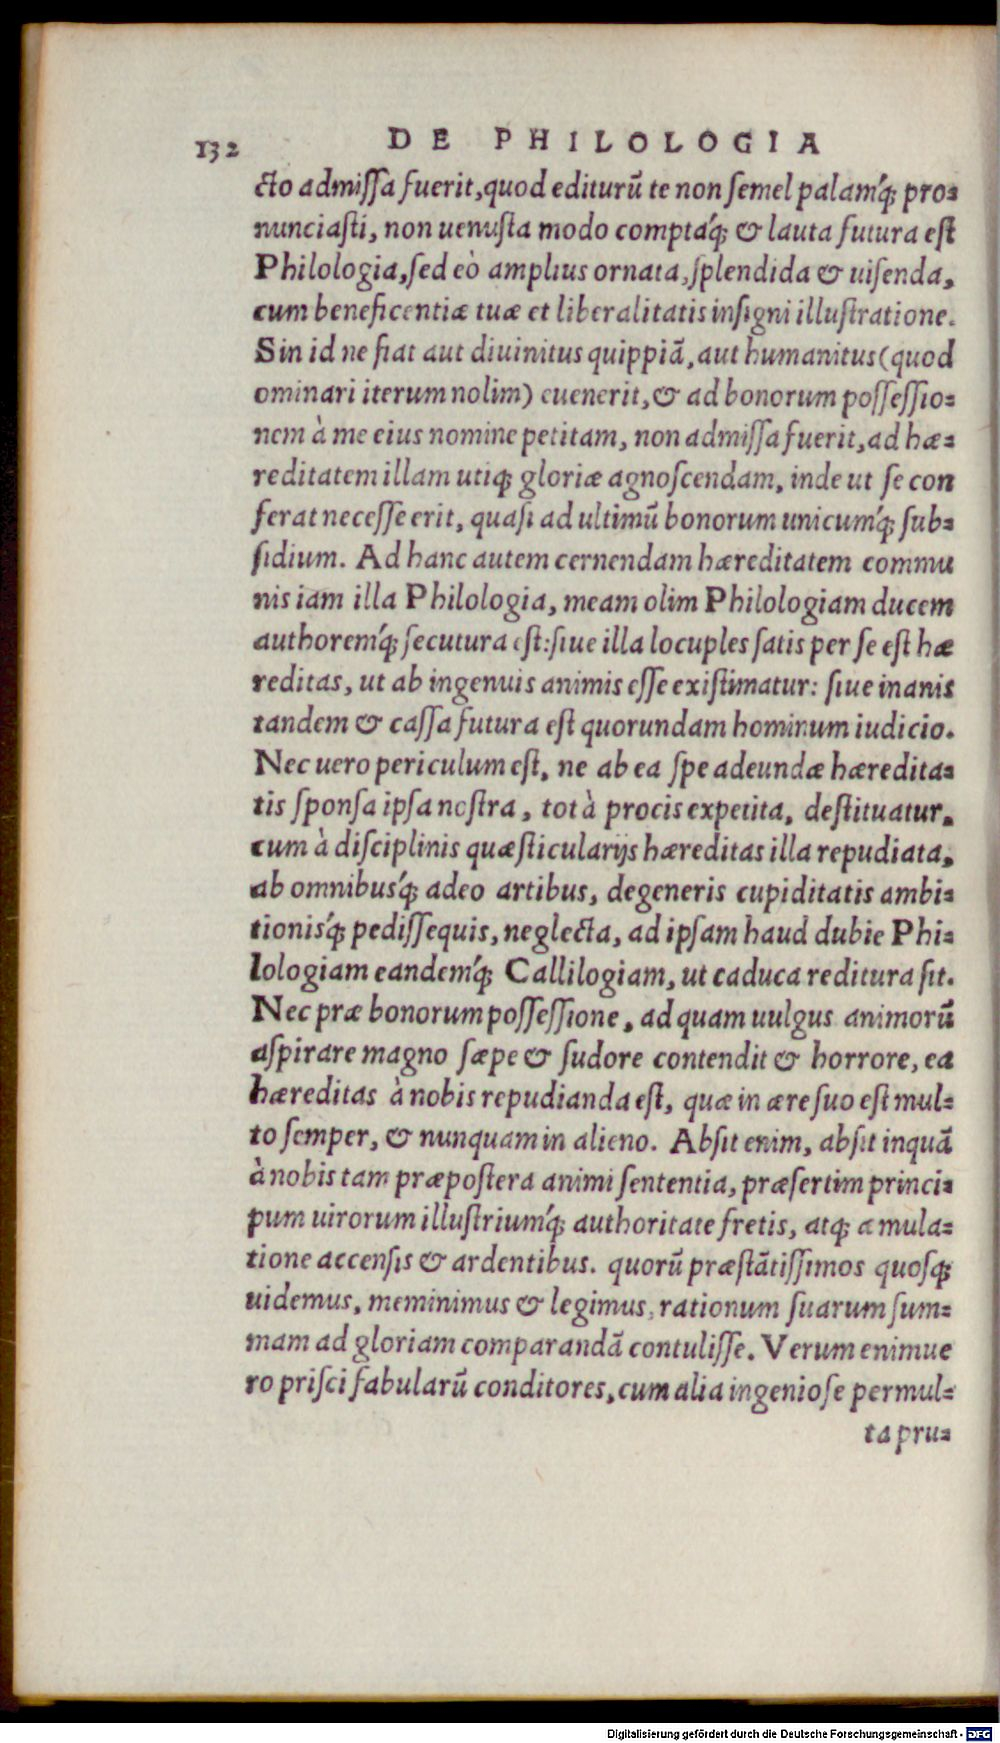 132 DE PHILOLOGIA
cto admiſſa fuerit, quod editurũ te non ſemel palamq́; pro-
nunciaſti, non uenuſta modo comptaq́; & lauta futura eſt
Philologia, ſed eò amplius ornata, ſplendida & uiſenda,
cum beneficentiæ tuæ et liberalitatis inſigni illuſtratione.
Sin id ne fiat aut diuinitus quippiã, aut humanitus (quod
ominari iterum nolim) euenerit, & ad bonorum poſſeſſio-
nem à me eius nomine petitam, non admiſſa fuerit, ad hæ-
reditatem illam utiq; gloriæ agnoſcendam, inde ut ſe con
ferat neceſſe erit, quaſi ad ultimũ bonorum unicumq́; ſub-
ſidium. Ad hanc autem cernendam hæreditatem commu
nis iam illa Philologia, meam olim Philologiam ducem
authoremq́; ſecutura eſt: ſiue illa locuples ſatis per ſe eſt hæ
reditas, ut ab ingenuis animis eſſe exiſtimatur: ſiue inanis
tandem & caſſa futura eſt quorundam hominum iudicio.
Nec uero periculum eſt, ne ab ea ſpe adeundæ hæredita-
tis ſponſa ipſa noſtra, tot à procis expetita, deſtituatur,
cum à diſciplinis quæſticularijs hæreditas illa repudiata,
ab omnibusq́; adeo artibus, degeneris cupiditatis ambi-
tionisq́; pediſſequis, neglecta, ad ipſam haud dubie Phi-
lologiam eandemq́; Callilogiam, ut caduca reditura ſit.
Nec præ bonorum poſſeſſione, ad quam uulgus animorũ
aſpirare magno ſæpe & ſudore contendit & horrore, ea
hæreditas à nobis repudianda eſt, quæ in ære ſuo eſt mul-
to ſemper, & nunquam in alieno. Abſit enim, abſit inquã
à nobis tam præpoſtera animi ſententia, præſertim princi-
pum uirorum illuſtriumq́; authoritate fretis, atq; æmula-
tione accenſis & ardentibus. quorũ præſtãtiſſimos quoſq;
uidemus, meminimus & legimus, rationum ſuarum ſum-
mam ad gloriam comparandã contuliſſe. Verum enimue
ro priſci fabularũ conditores, cum alia ingenioſe permul-
ta pru-
Digitalisierung gefördert durch die Deutsche Forschungsgemeinschaft - DFG